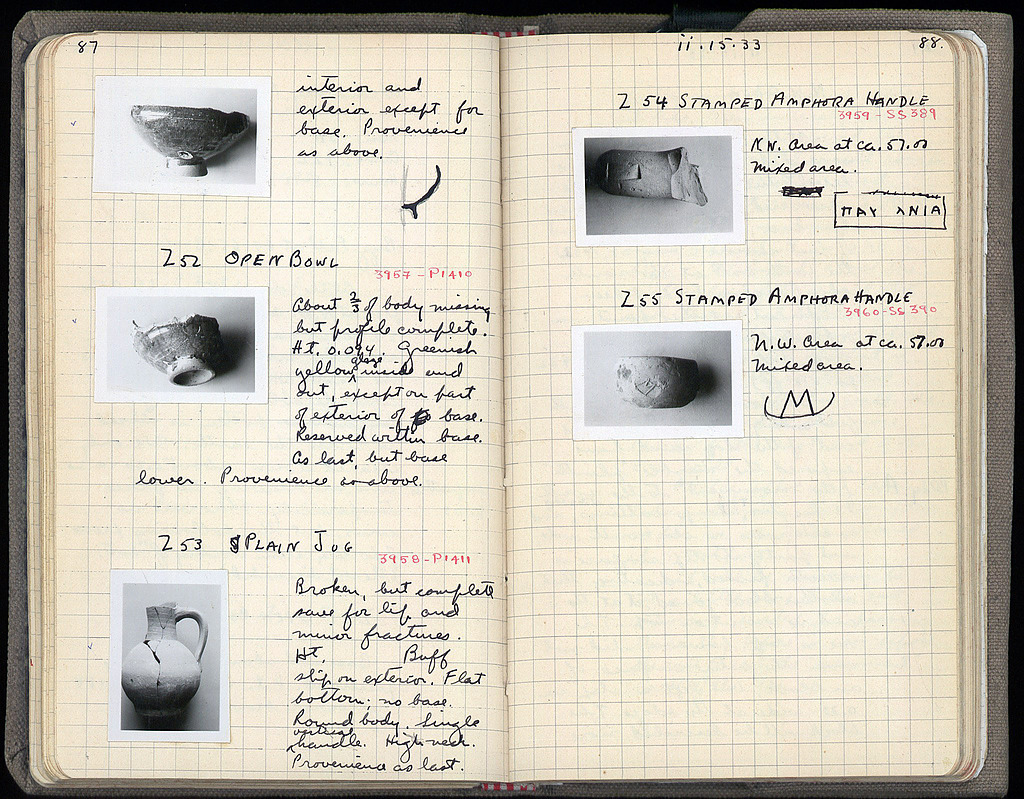 87
interior and
exterior except for
base. Provenience
as above.
Z 52 OPEN BOWL
3957 - P1410
About 2/3 of body missing
but profile complete.
Ht. 0.094. Greenish
yellow glaze inside and
out, except on part
of exterior of base.
Reserved within base.
As last, but base
lower. Provenience as above.
Z 53 PLAIN JUG
3958 - P1411
Broken, but complete
save for lip and
minor fractures.
Ht. Buff
slip on exterior. Flat
bottom; no base.
Round body. Single
vertical
handle. High neck.
Provenience as last.
ii.15.33
88.
Z 54 STAMPED AMPHORA HANDLE
3959 - SS 389
N.W. Area at ca. 57.00
Mixed area.
ΠΑΥ ΛΝΙΑ
Z 55 STAMPED AMPHORA HANDLE
3960 - SS 390
N.W. Area at ca. 57.00
Mixed area.
M